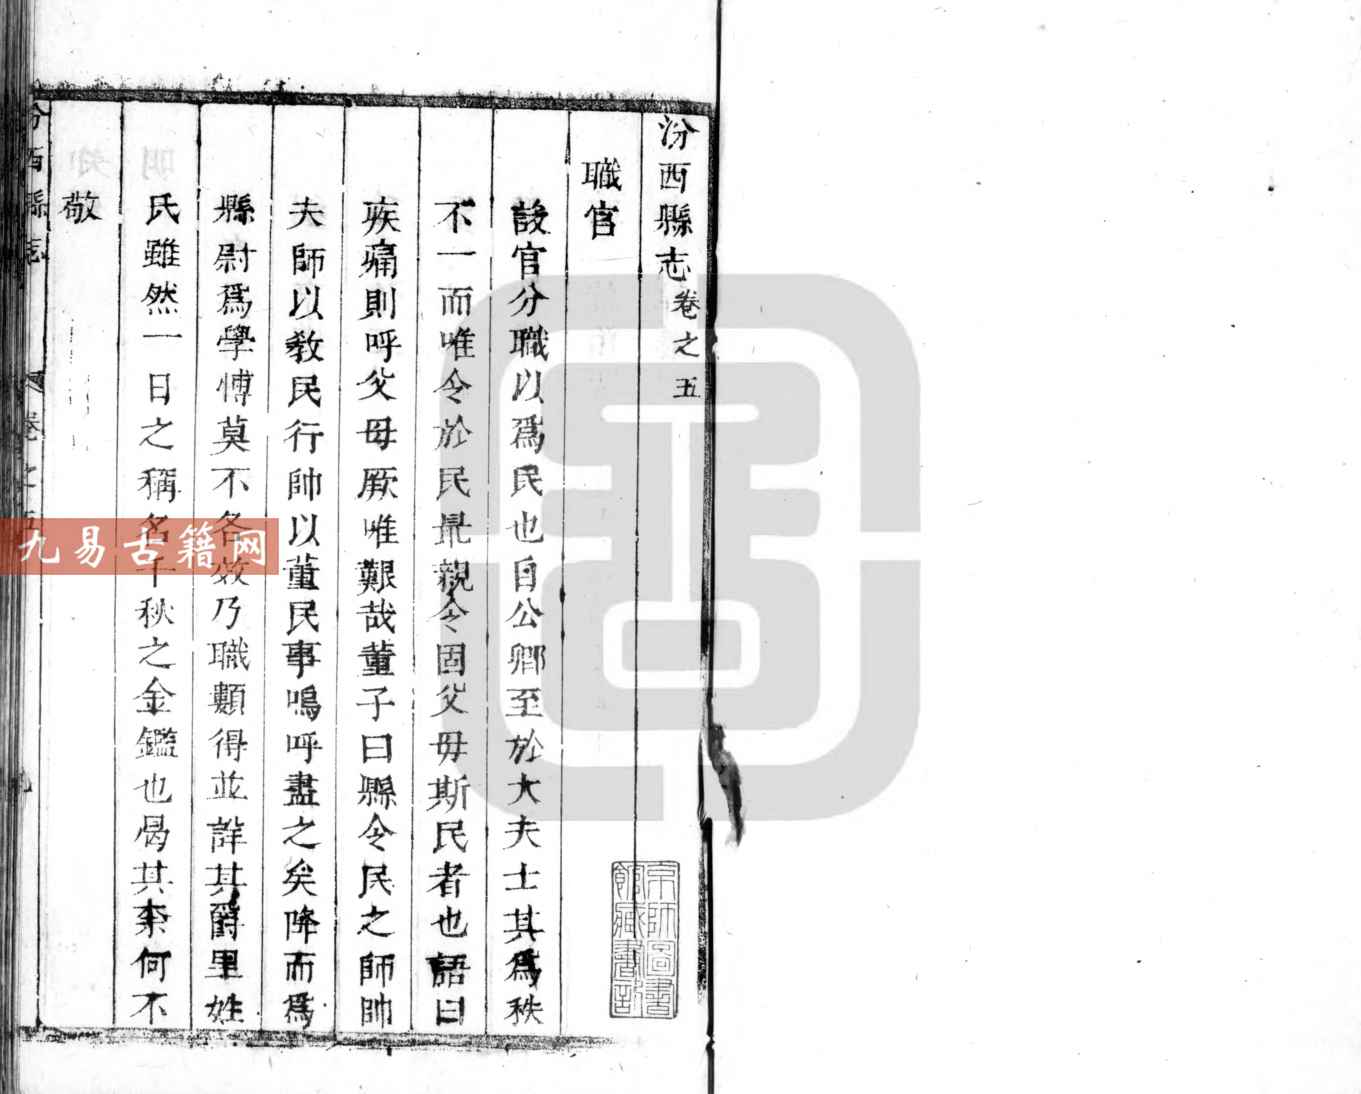 汾西縣志卷之五
職官
設官分職以爲民也自公卿至於大夫士其爲秩
不一而唯令於民最親令固父母斯民者也語曰
疾痛則呼父母厥唯艱哉董子曰縣令民之師帥
夫師以教民行帥以董民事嗚呼盡之矣降而爲
縣尉爲學博莫不各效乃職類得並詳其爵里姓
氏雖然一日之稱名千秋之金鑑也曷其柰何不
敬
京師圖書
館藏書記
九易古籍网